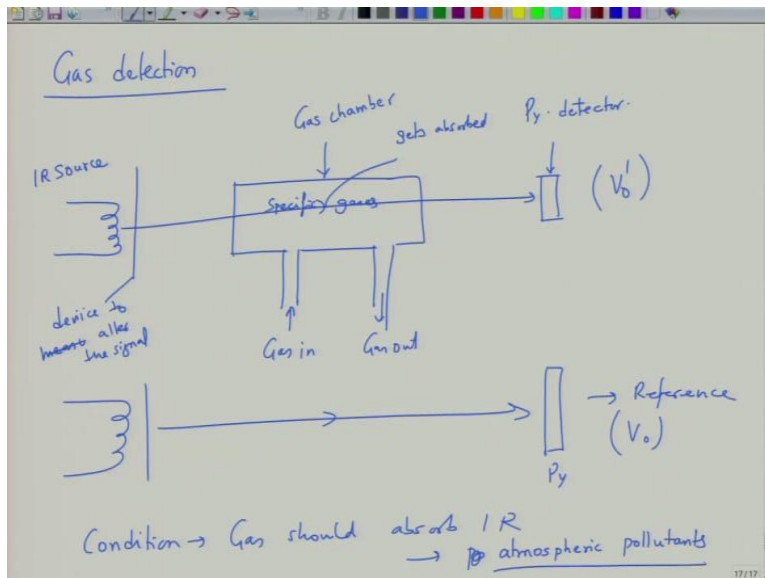 Gas detection
Gas chamber
gets absorbed
Py. detector.
IR Source
specific gases
(V₀')
device to
alter
the signal
Gas in
Gas out
→ Reference
(V₀)
Py
Condition → Gas should absorb IR
→ atmospheric pollutants
17/17